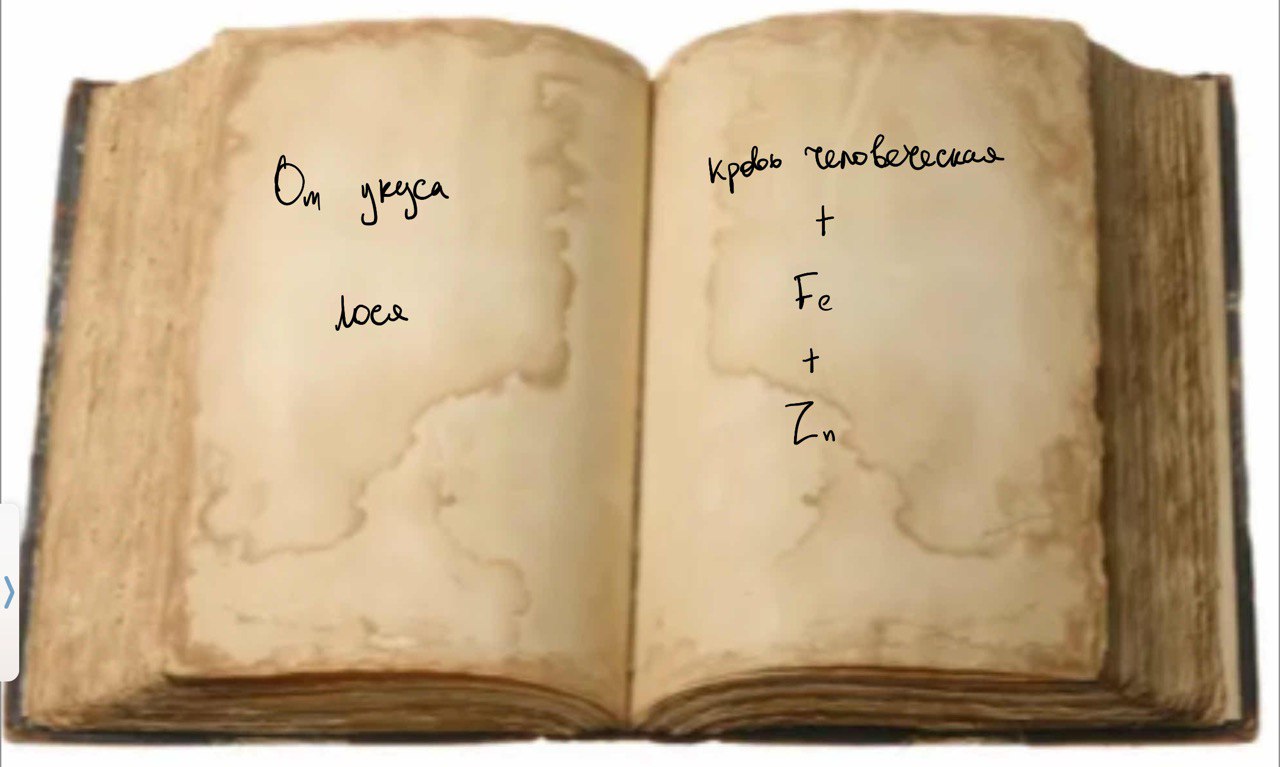 От укуса
лося
кровь человеческая
+
Fe
+
Zn